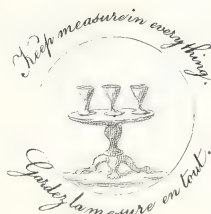 Keep measure in everything.
Gardez la mesure en tout.